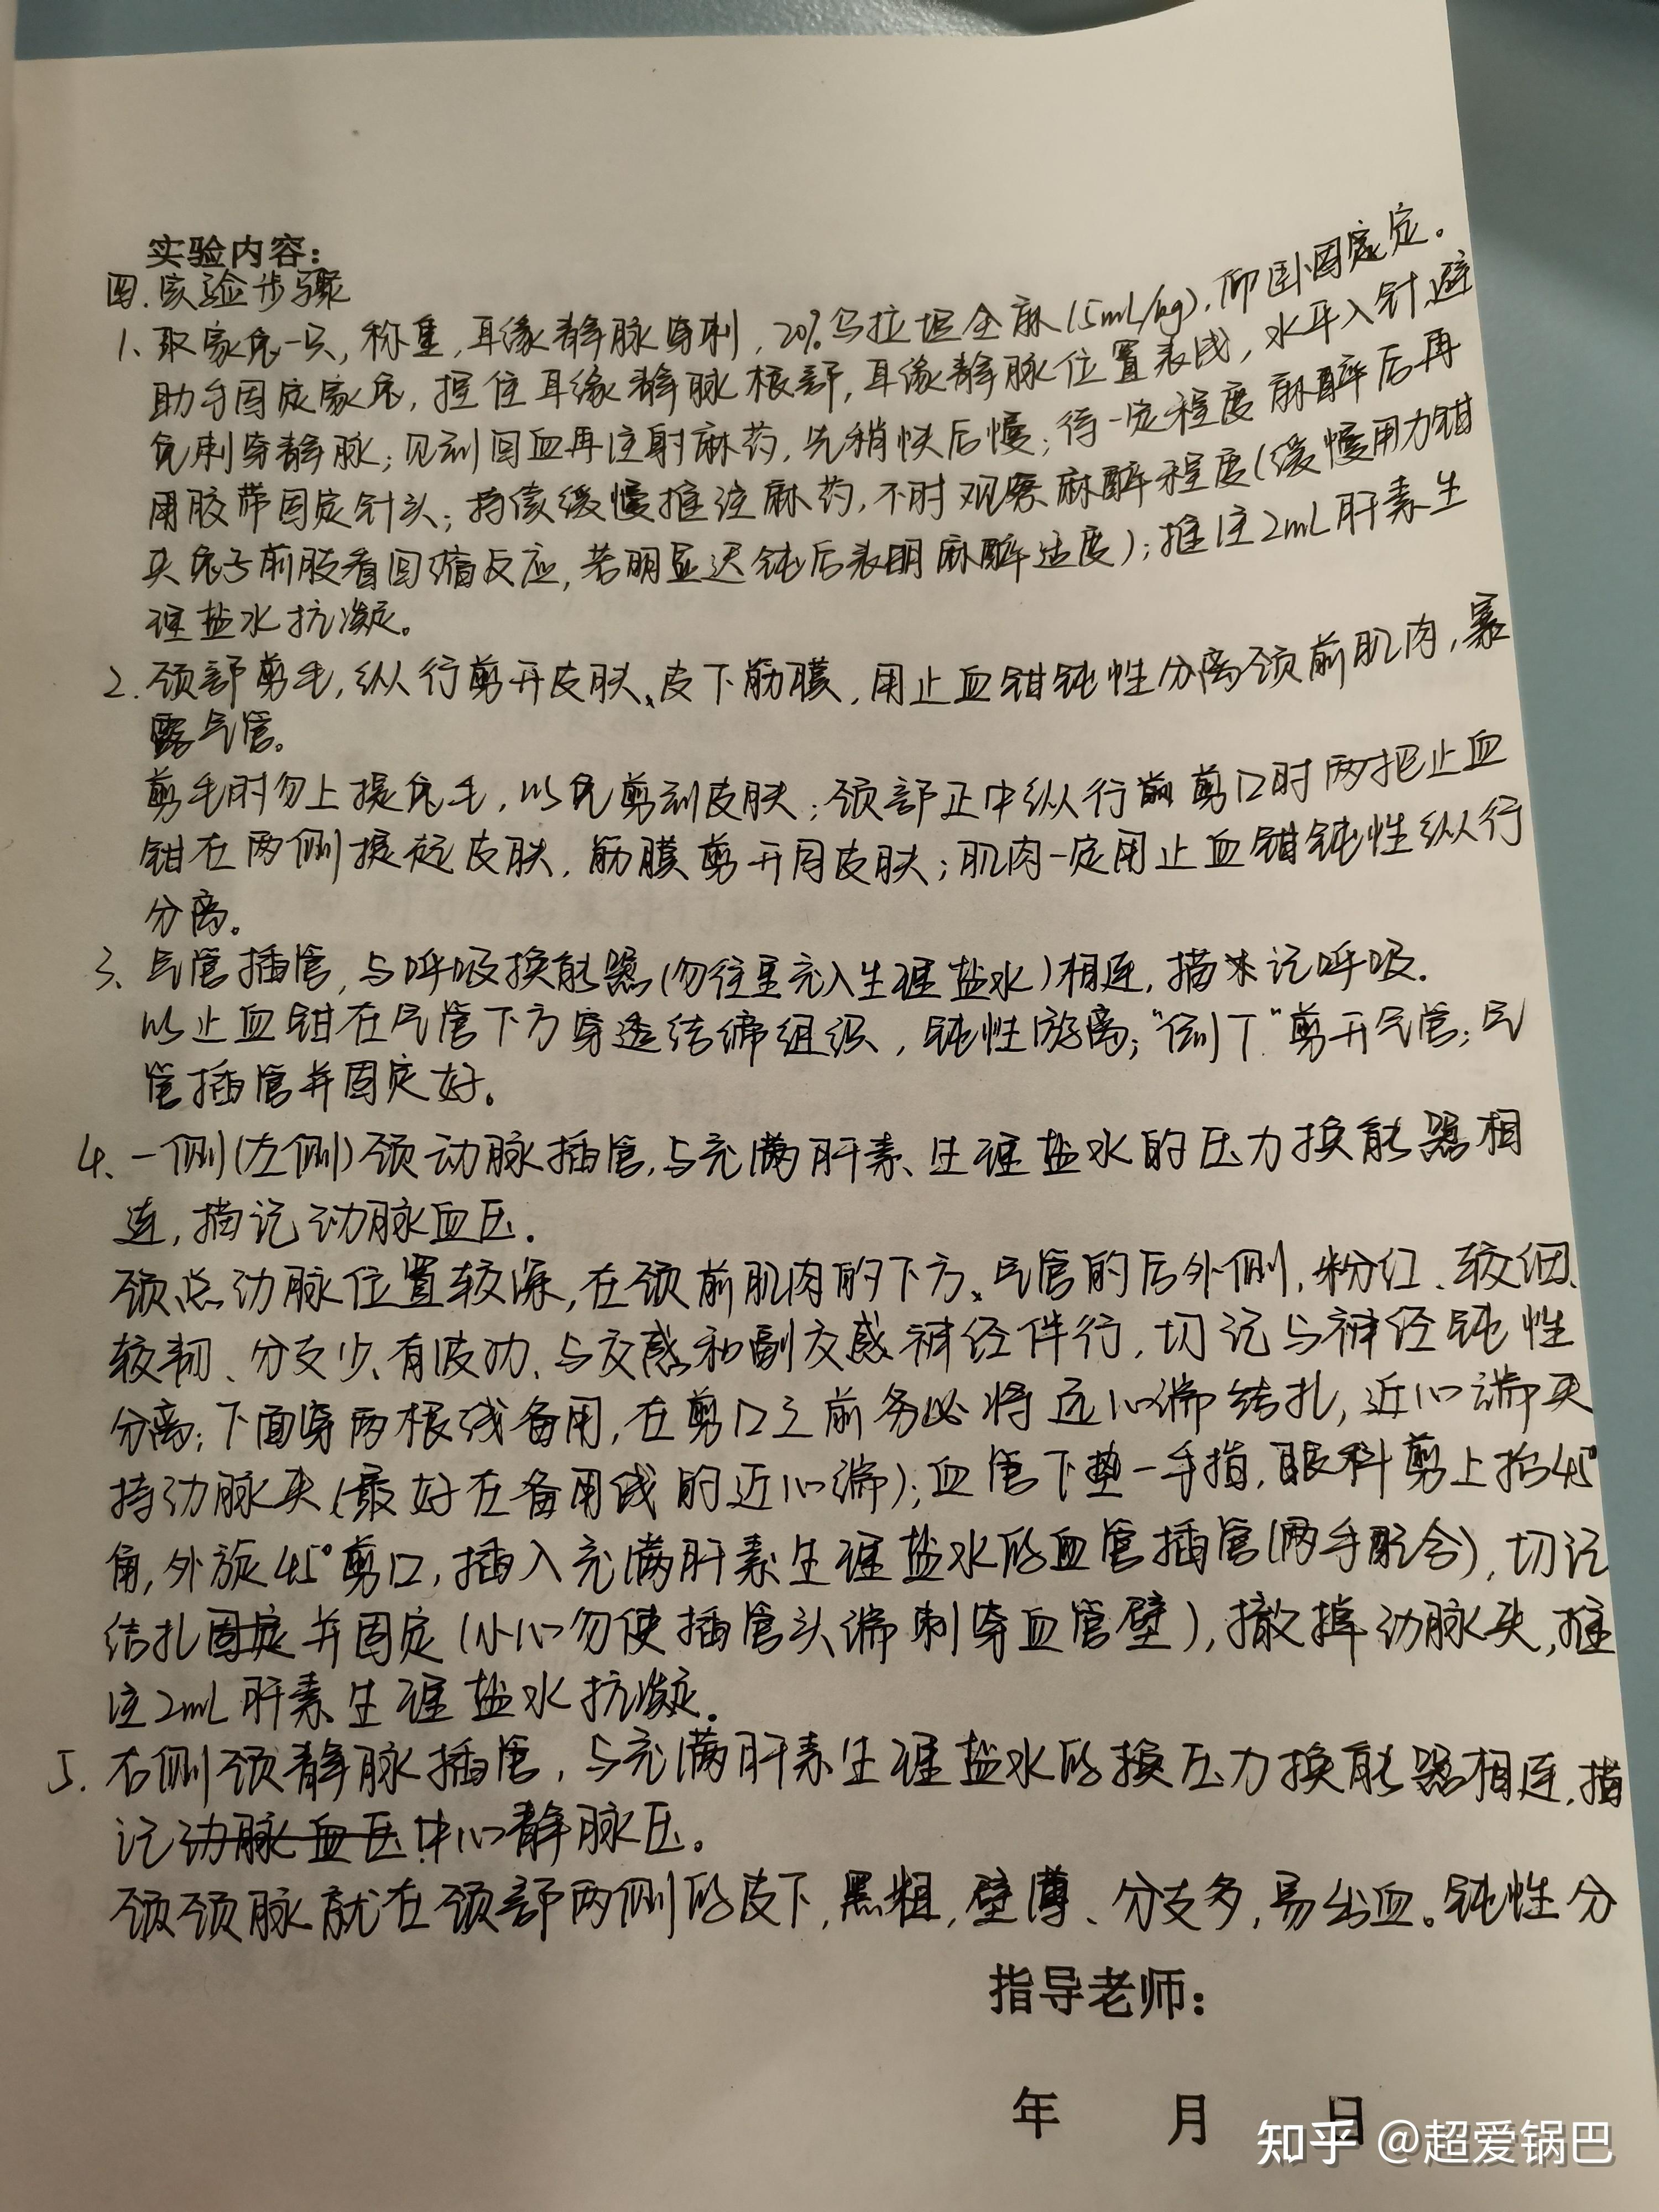 实验内容：
四.实验步骤
1、取家兔一只，称重，耳缘静脉穿刺，20%乌拉坦全麻(5mL/kg)，仰卧固定。
助手固定家兔，捏住耳缘静脉根部，耳缘静脉位置表浅，水平入针，避
免刺穿静脉；见到回血再注射麻药，先稍快后慢；待一定程度麻醉后再
用胶带固定针头；持续缓慢推注麻药，不时观察麻醉程度(缓慢用力钳
夹兔子前肢看回缩反应，若明显迟钝后表明麻醉适度)；推注2mL肝素生
理盐水抗凝。
2.颈部剪毛，纵行剪开皮肤、皮下筋膜，用止血钳钝性分离颈前肌肉，暴
露气管。
剪毛时勿上提兔毛，以免剪到皮肤；颈部正中纵行剪口时两把止血
钳在两侧提起皮肤，筋膜剪开同皮肤；肌肉一定用止血钳钝性纵行
分离。
3、气管插管，与呼吸换能器(勿往里充入生理盐水)相连，描记呼吸.
以止血钳在气管下方穿透结缔组织，钝性游离；"倒T"剪开气管；气
管插管并固定好。
4、一侧(左侧)颈动脉插管，与充满肝素、生理盐水的压力换能器相
连，描记动脉血压.
颈总动脉位置较深，在颈前肌肉的下方、气管的后外侧，粉红、较细、
较韧、分支少、有波动、与交感和副交感神经伴行，切记与神经钝性
分离；下面穿两根线备用，在剪口之前务必将远心端结扎，近心端夹
持动脉夹(最好在备用线的近心端)；血管下垫一手指，眼科剪上抬45°
角，外旋45°剪口，插入充满肝素生理盐水的血管插管(两手配合)，切记
结扎固定并固定(小心勿使插管头端刺穿血管壁)，撤掉动脉夹，推
注2mL肝素生理盐水抗凝.
5.右侧颈静脉插管，与充满肝素生理盐水的换压力换能器相连，描
记动脉血压中心静脉压。
颈颈脉就在颈部两侧的皮下，黑粗，壁薄、分支多，易出血。钝性分
指导老师：
年 月 日
知乎 @超爱锅巴